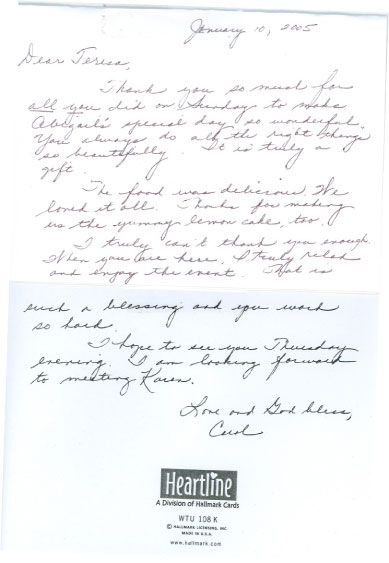 January 10, 2005
Dear Teresa,
Thank you so much for
all you did on Sunday to make
Abigail's special day so wonderful.
You always do all the right things
so beautifully. It is truly a
gift.
The food was delicious. We
loved it all. Thanks for making
us the yummy lemon cake, too.
I truly can't thank you enough.
When you are here, I truly relax
and enjoy the event. That is
such a blessing and you work
so hard.
I hope to see you Thursday
evening. I am looking forward
to meeting Karen.
Love and God bless,
Carol
Heartline
A Division of Hallmark Cards
WTU 108 K
© HALLMARK LICENSING, INC.
MADE IN U.S.A.
www.hallmark.com